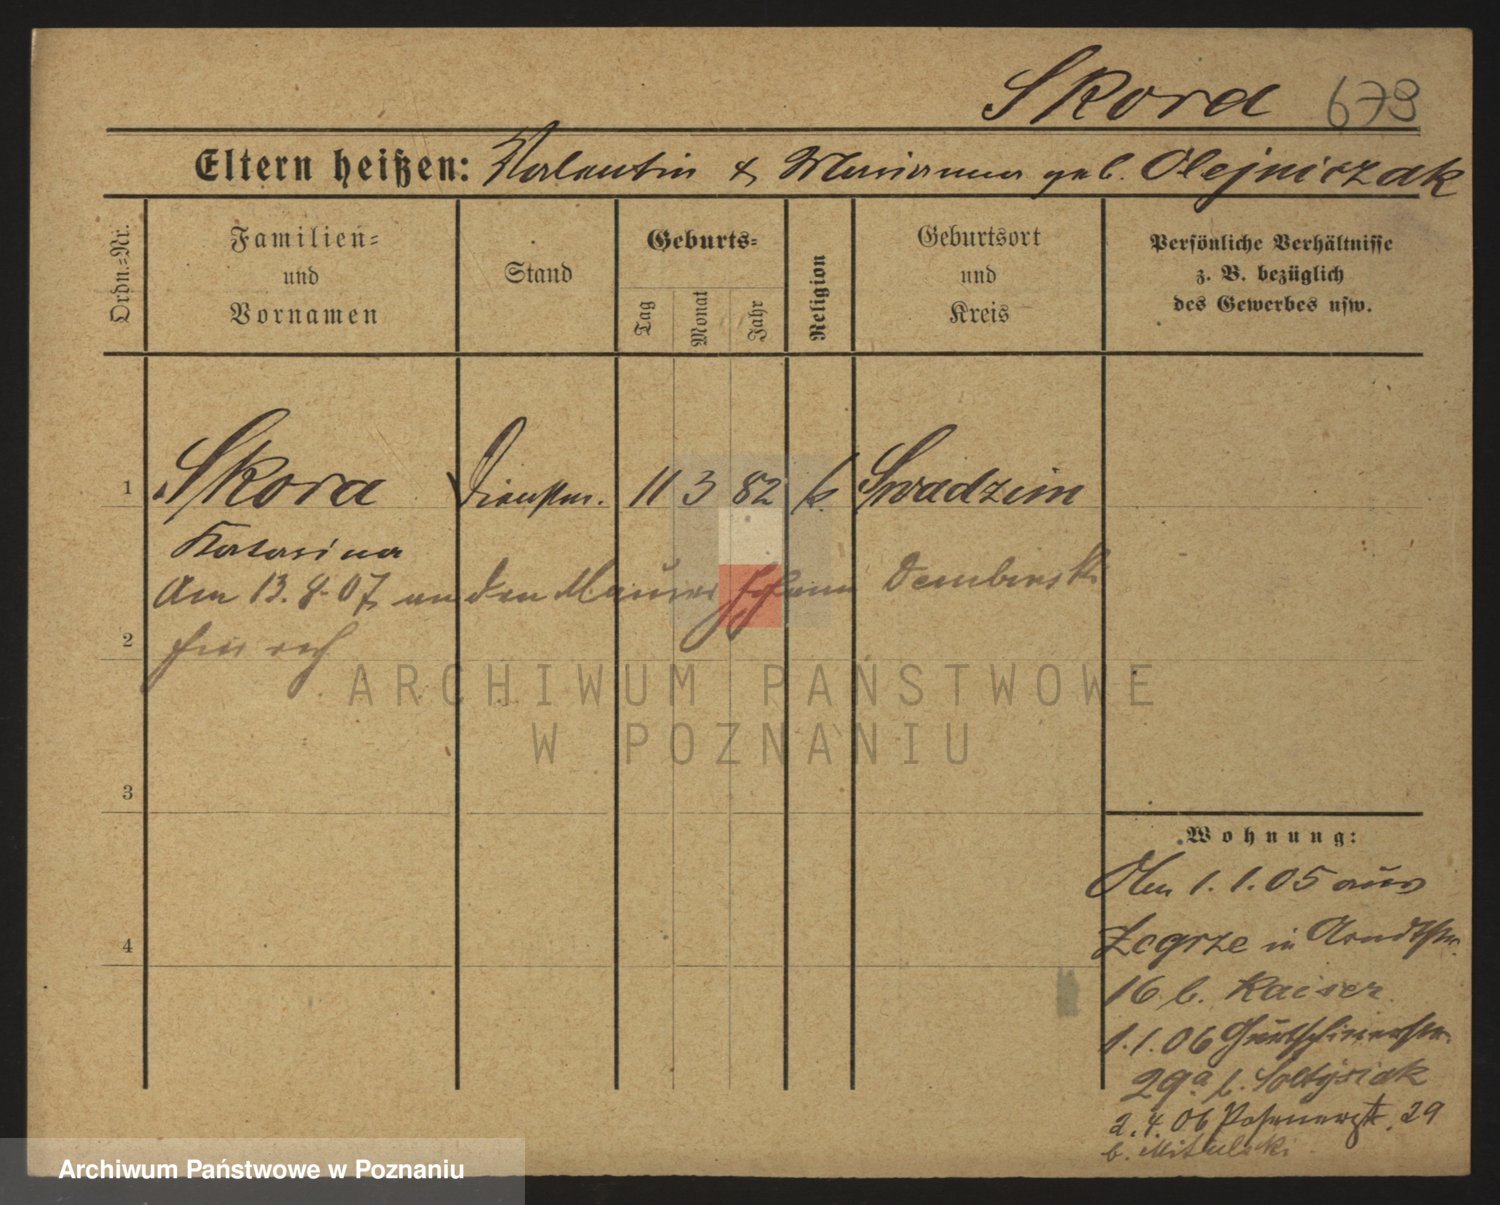 Skora 673
Eltern heißen: Valentin & Marianna geb. Olejniczak
Ordn.-Nr.
Familien-
und
Vornamen
Stand
Geburts-
Tag
Monat
Jahr
Religion
Geburtsort
und
Kreis
Persönliche Verhältnisse
z. B. bezüglich
des Gewerbes usw.
1 Skora Dienstm. 11 3 82 k. Swadzim
Katarina
Am 13. 8. 07 an den Maurer Johann Dembinski
2
3
4
Wohnung:
Am 1.1.05 aus
Zegrze in Arndtstr.
16 b. Kaiser
1.1.06 Gurtschinerstr.
29a b. Soltysiak
2.4.06 Posenerstr. 29
b. Mikulski
ARCHIWUM PAŃSTWOWE
W POZNANIU
Archiwum Państwowe w Poznaniu